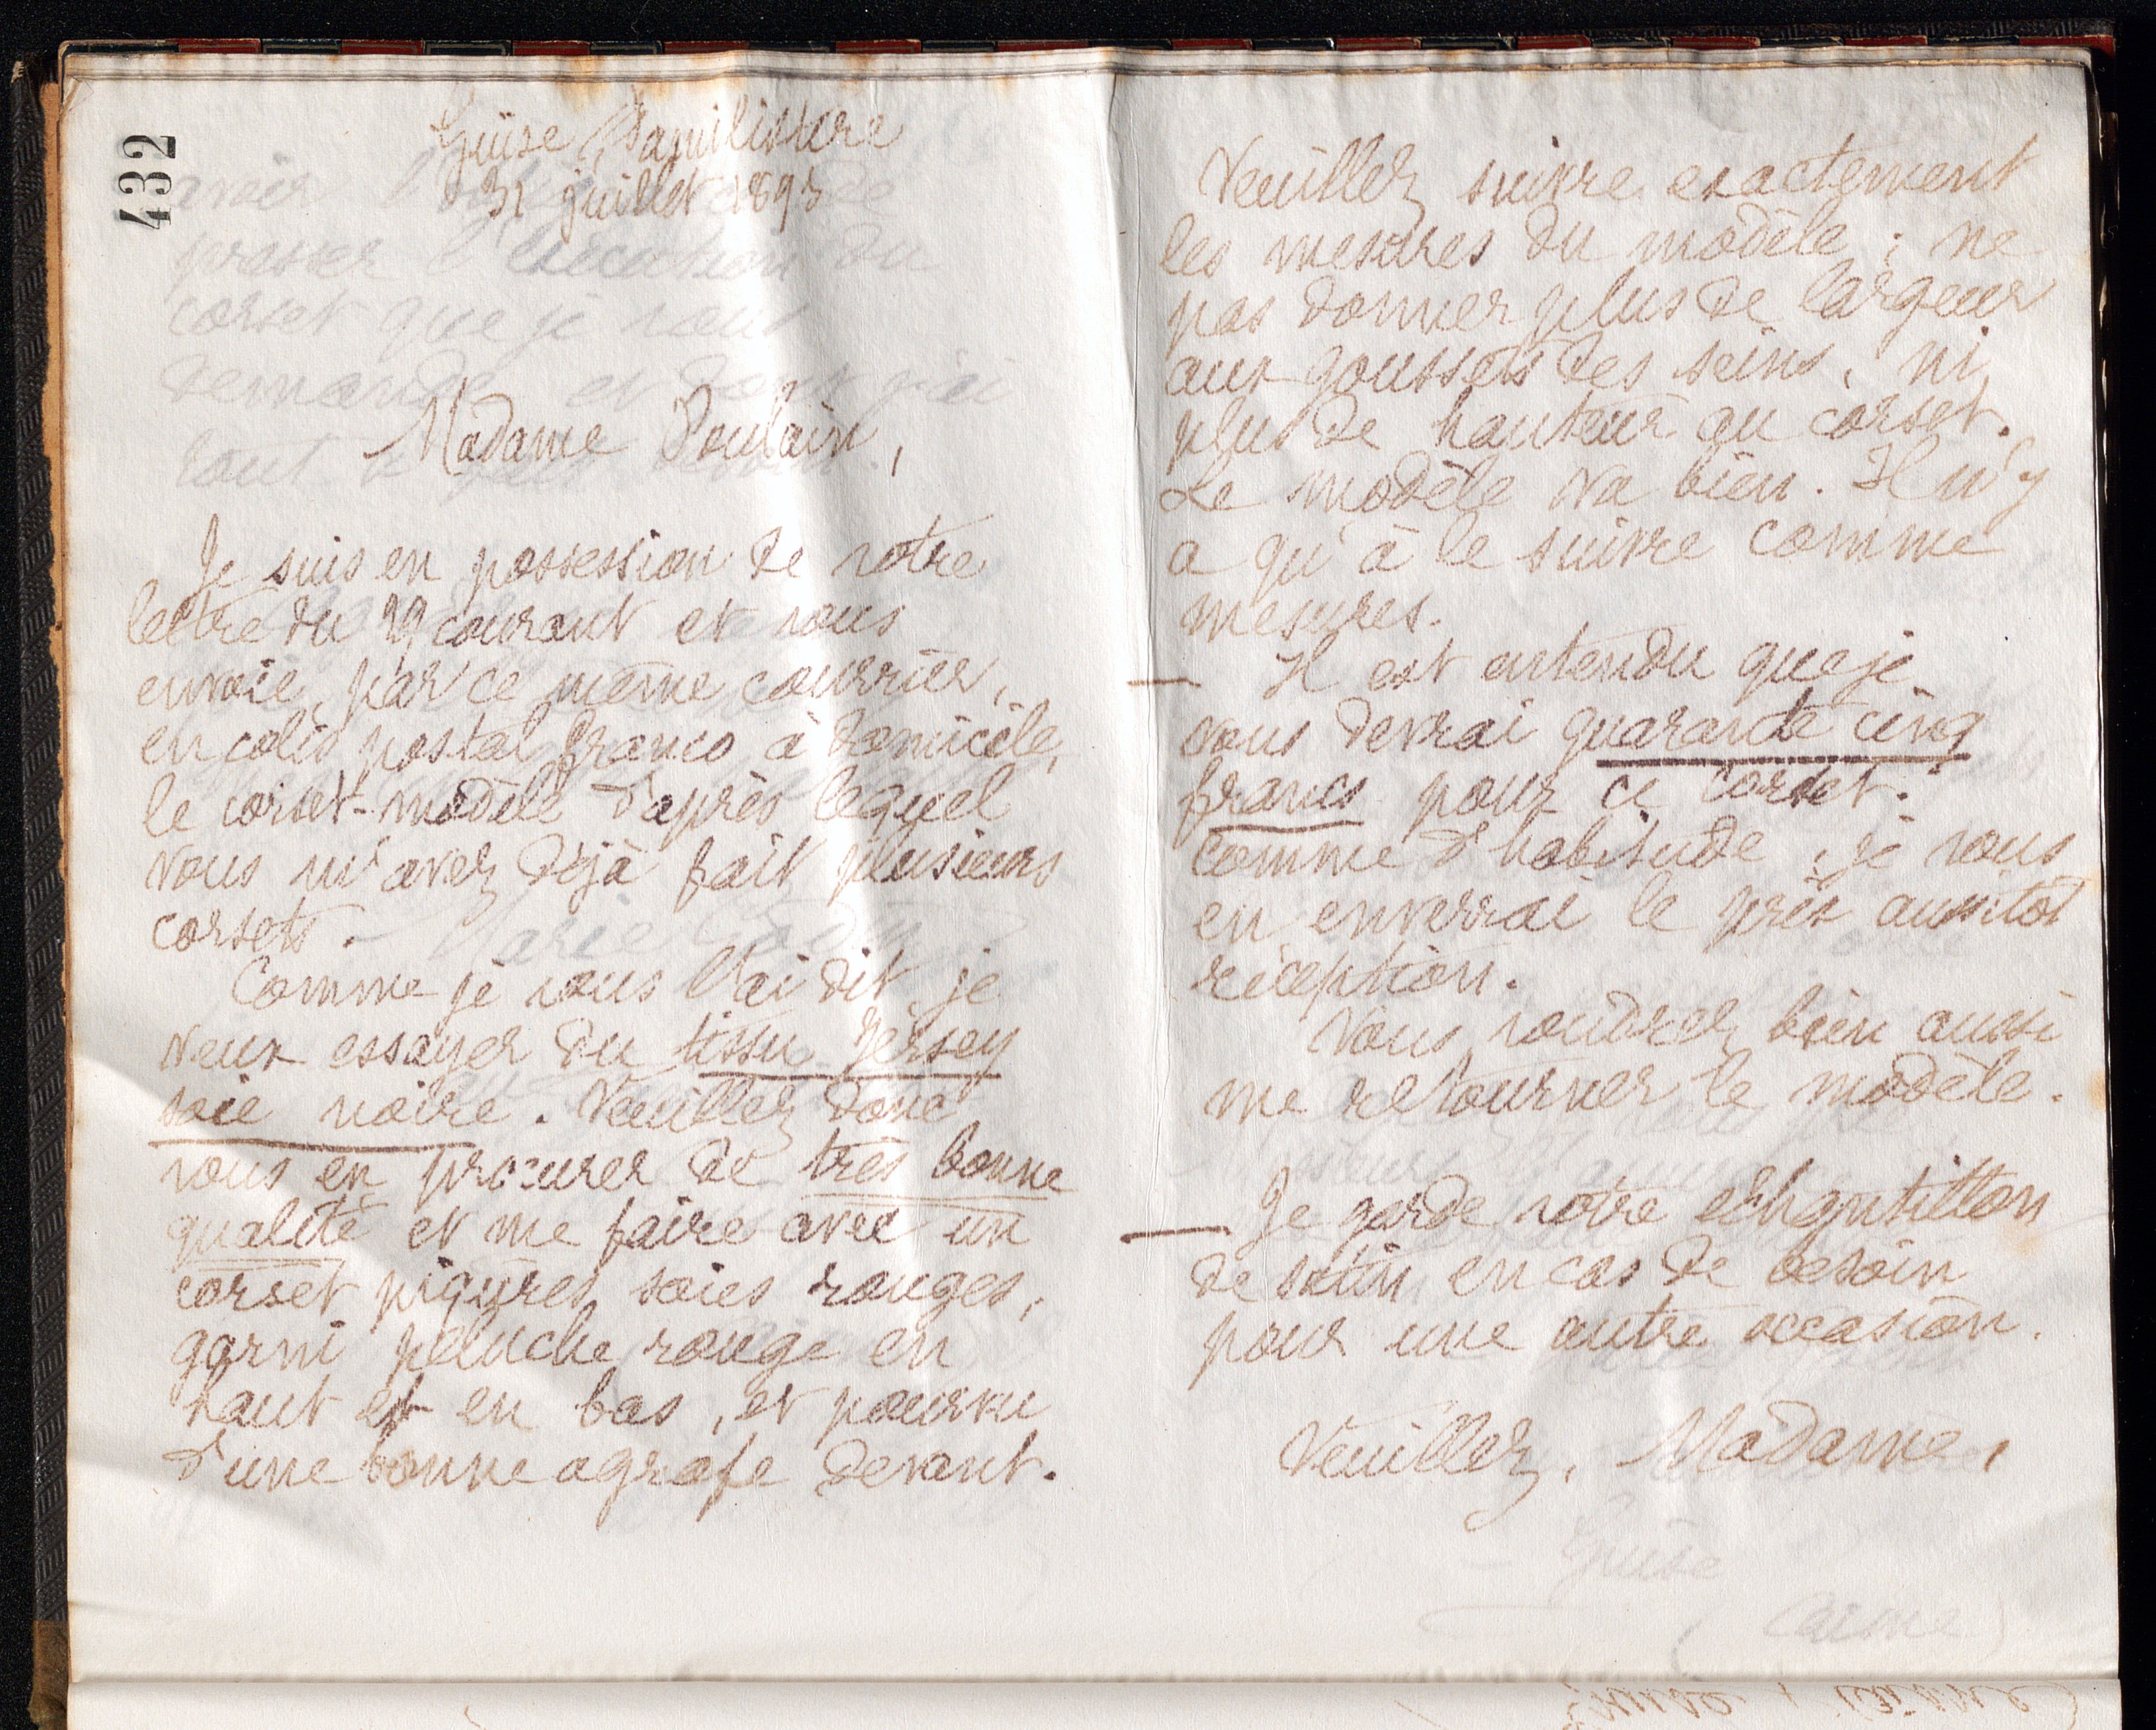 432
Guise, Familistère
31 juillet 1893
Madame Poulain,
Je suis en possession de votre
lettre du 29 courant et vous
envoie, par ce même courrier,
en colis postal franco à domicile,
le corset-modèle d'après lequel
vous m'avez déjà fait plusieurs
corsets.
Comme je vous l'ai dit je
veux essayer du tissu Jersey
soie noire. Veuillez donc
vous en procurer de très bonne
qualité et me faire avec un
corset piqûres soies rouges,
garni peluche rouge en
haut et en bas, et pourvu
d'une bonne agrafe devant.
Veuillez suivre exactement
les mesures du modèle ; ne
pas donner plus de largeur
aux goussets des seins, ni
plus de hauteur au corset.
Le modèle va bien. Il n'y
a qu'à le suivre comme
mesures.
Il est entendu que je
vous devrai quarante cinq
francs pour ce corset.
Comme d'habitude, je vous
en enverrai le prix aussitôt
réception.
Vous voudrez bien aussi
me retourner le modèle.
Je garde votre échantillon
de satin en cas de besoin
pour une autre occasion.
Veuillez, Madame,